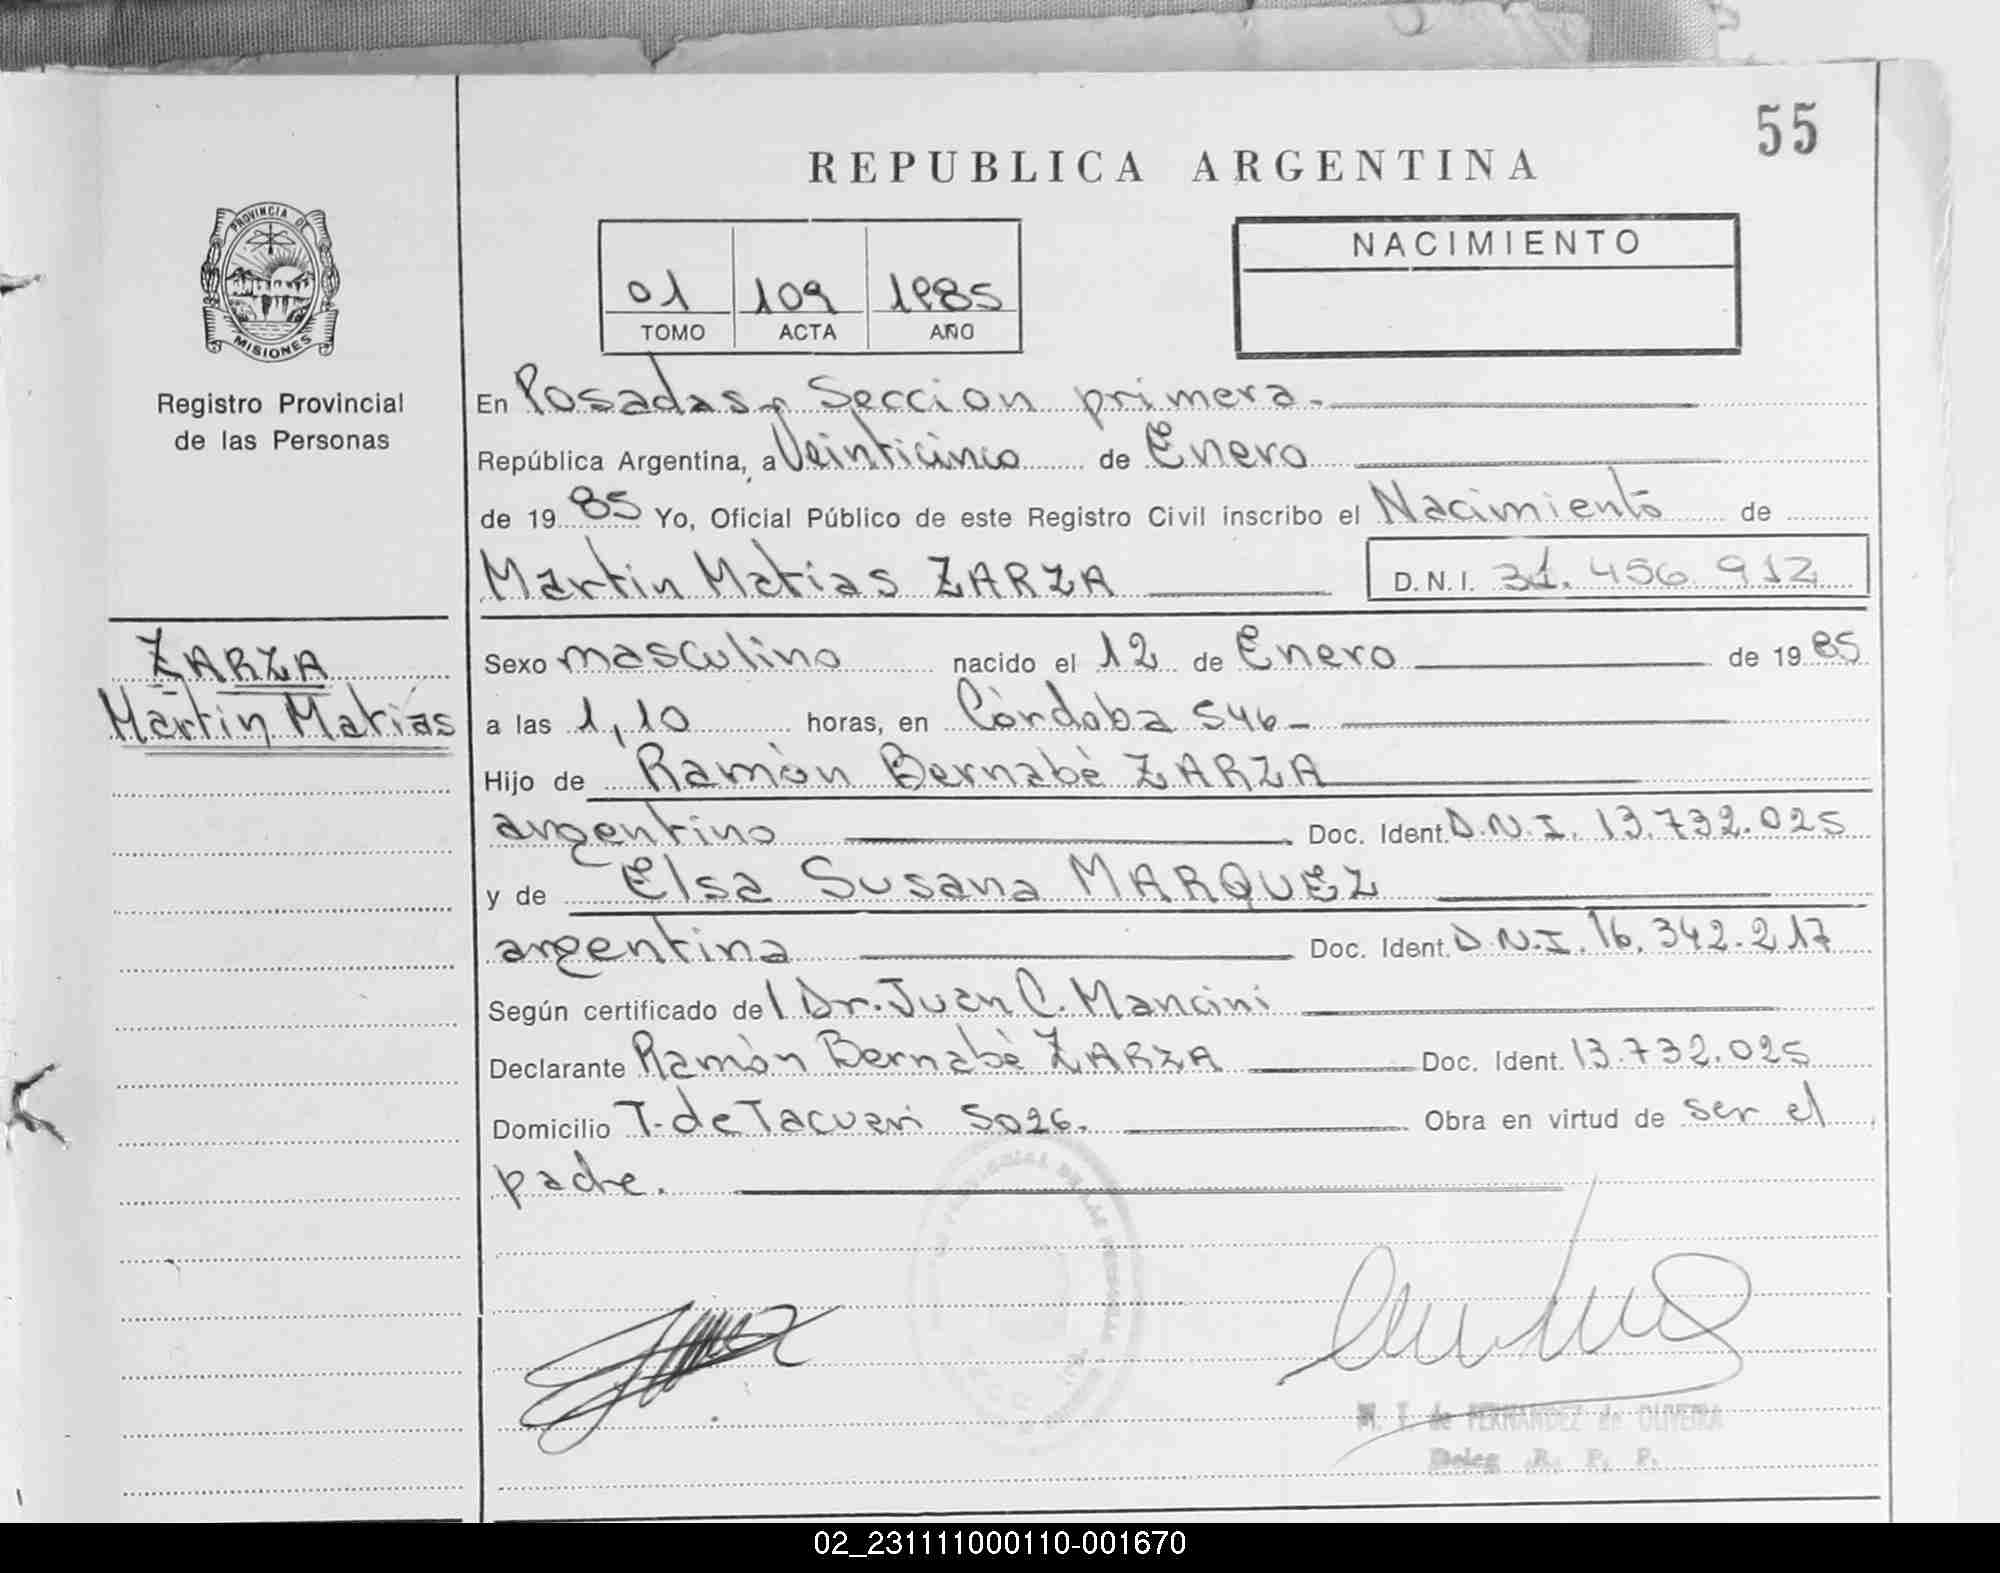 55
REPUBLICA ARGENTINA
PROVINCIA DE
MISIONES
Registro Provincial
de las Personas
01 109 1985
TOMO ACTA AÑO
NACIMIENTO
En Posadas, Seccion primera.
República Argentina, a Veinticinco de Enero
de 1985 Yo, Oficial Público de este Registro Civil inscribo el Nacimiento de
Martin Matias ZARZA D.N.I. 31.456.912
ZARZA
Martin Matias
Sexo masculino nacido el 12 de Enero de 1985
a las 1,10 horas, en Córdoba 546-
Hijo de Ramòn Bernabè ZARZA
argentino Doc. Ident. D.N.I. 13.732.025
y de Elsa Susana MARQUEZ
argentina Doc. Ident. D.N.I. 16.342.217
Según certificado del Dr. Juan C. Mancini
Declarante Ramòn Bernabè ZARZA Doc. Ident. 13.732.025
Domicilio T. de Tacuari 5026. Obra en virtud de ser el
padre.
M. T. de FERNANDEZ de OLIVEIRA
Deleg. R. P. P.
02_231111000110-001670